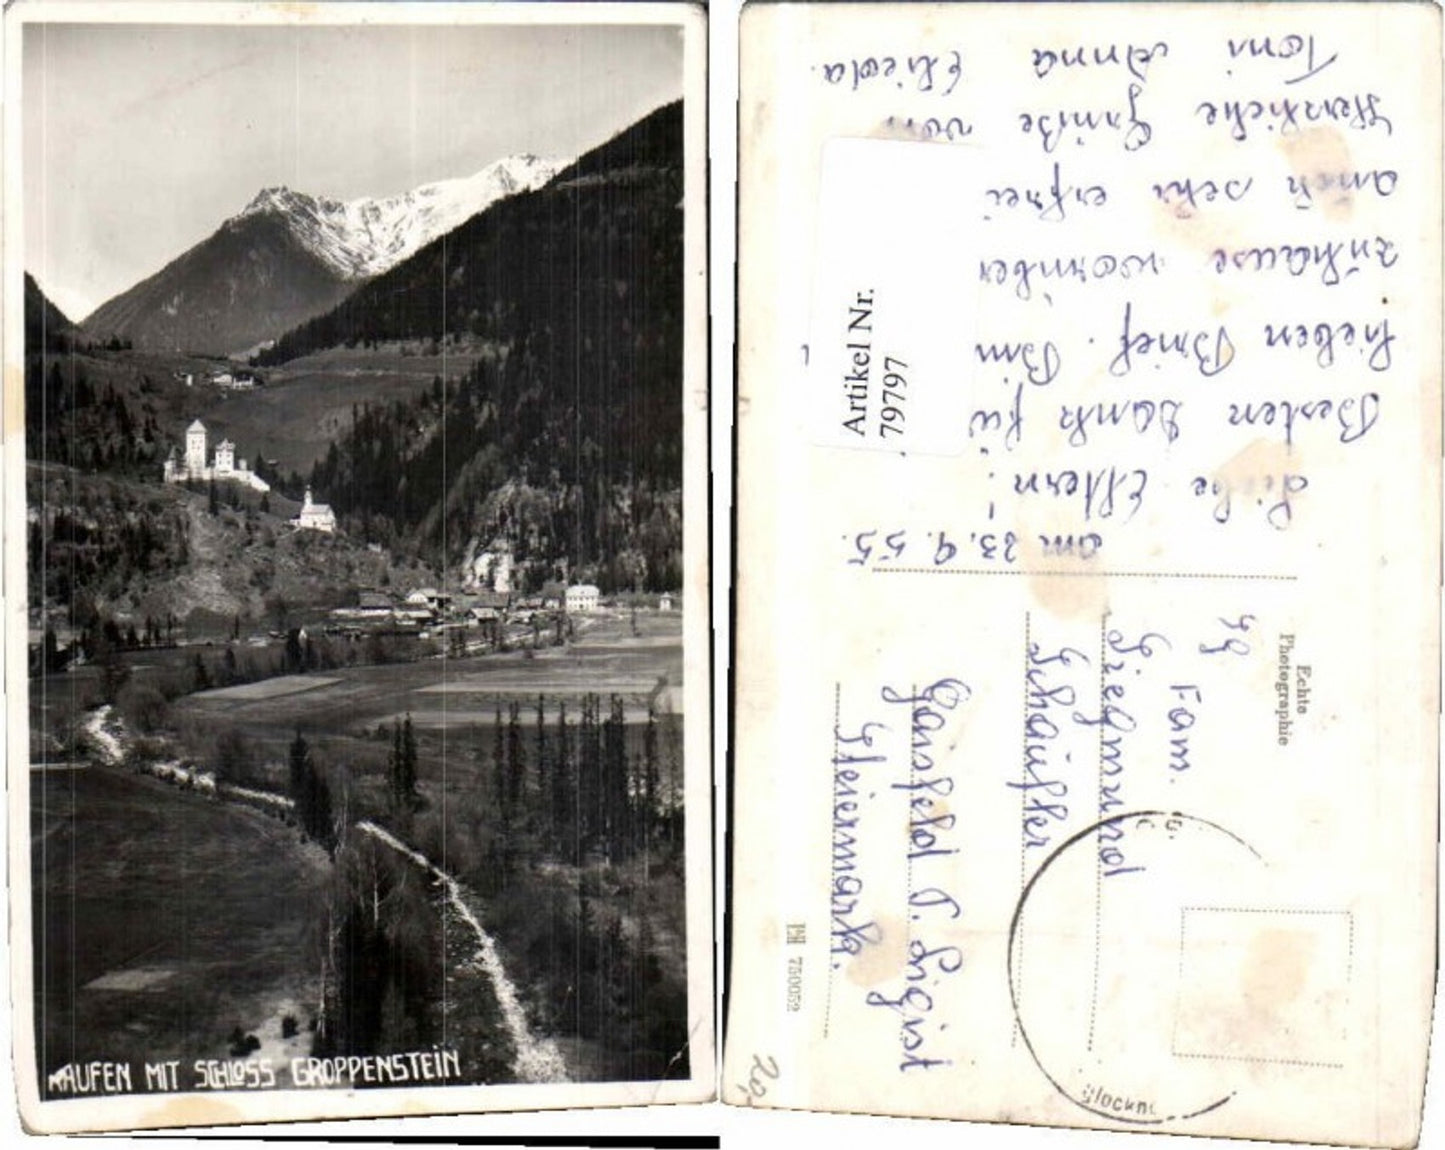 RAUFEN MIT SCHLOSS GROPPENSTEIN
am 23.9.55.
Liebe Eltern!
Besten Dank für
lieben Brief. Bin
zuhause worüber
auch sehr erfrei
Herzliche Grüße von
Toni Anna Elieola.
Artikel Nr.
79797
Echte
Photographie
Fam.
Siegmund
Schaufler
Gaisfeld P. Ligist
Steiermark.
PH 750052
Glockn
20,-